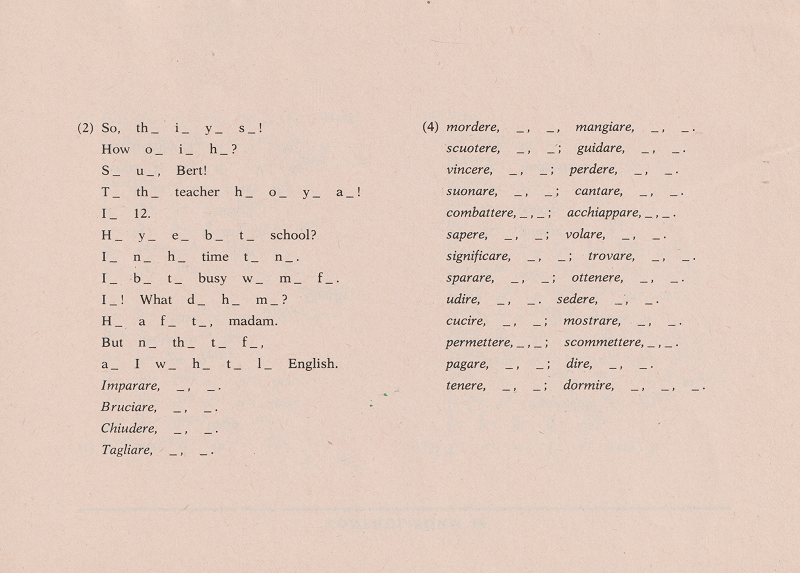 (2) So, th_ i_ y_ s_!
How o_ i_ h_?
S_ u_, Bert!
T_ th_ teacher h_ o_ y_ a_!
I_ 12.
H_ y_ e_ b_ t_ school?
I_ n_ h_ time t_ n_.
I_ b_ t_ busy w_ m_ f_.
I_! What d_ h_ m_?
H_ a f_ t_, madam.
But n_ th_ t_ f_,
a_ I w_ h_ t_ l_ English.
Imparare, _, _.
Bruciare, _, _.
Chiudere, _, _.
Tagliare, _, _.
(4) mordere, _, _, mangiare, _, _.
scuotere, _, _; guidare, _, _.
vincere, _, _; perdere, _, _.
suonare, _, _; cantare, _, _.
combattere, _, _; acchiappare, _, _.
sapere, _, _; volare, _, _.
significare, _, _; trovare, _, _.
sparare, _, _; ottenere, _, _.
udire, _, _. sedere, _, _.
cucire, _, _; mostrare, _, _.
permettere, _, _; scommettere, _, _.
pagare, _, _; dire, _, _.
tenere, _, _; dormire, _, _, _.